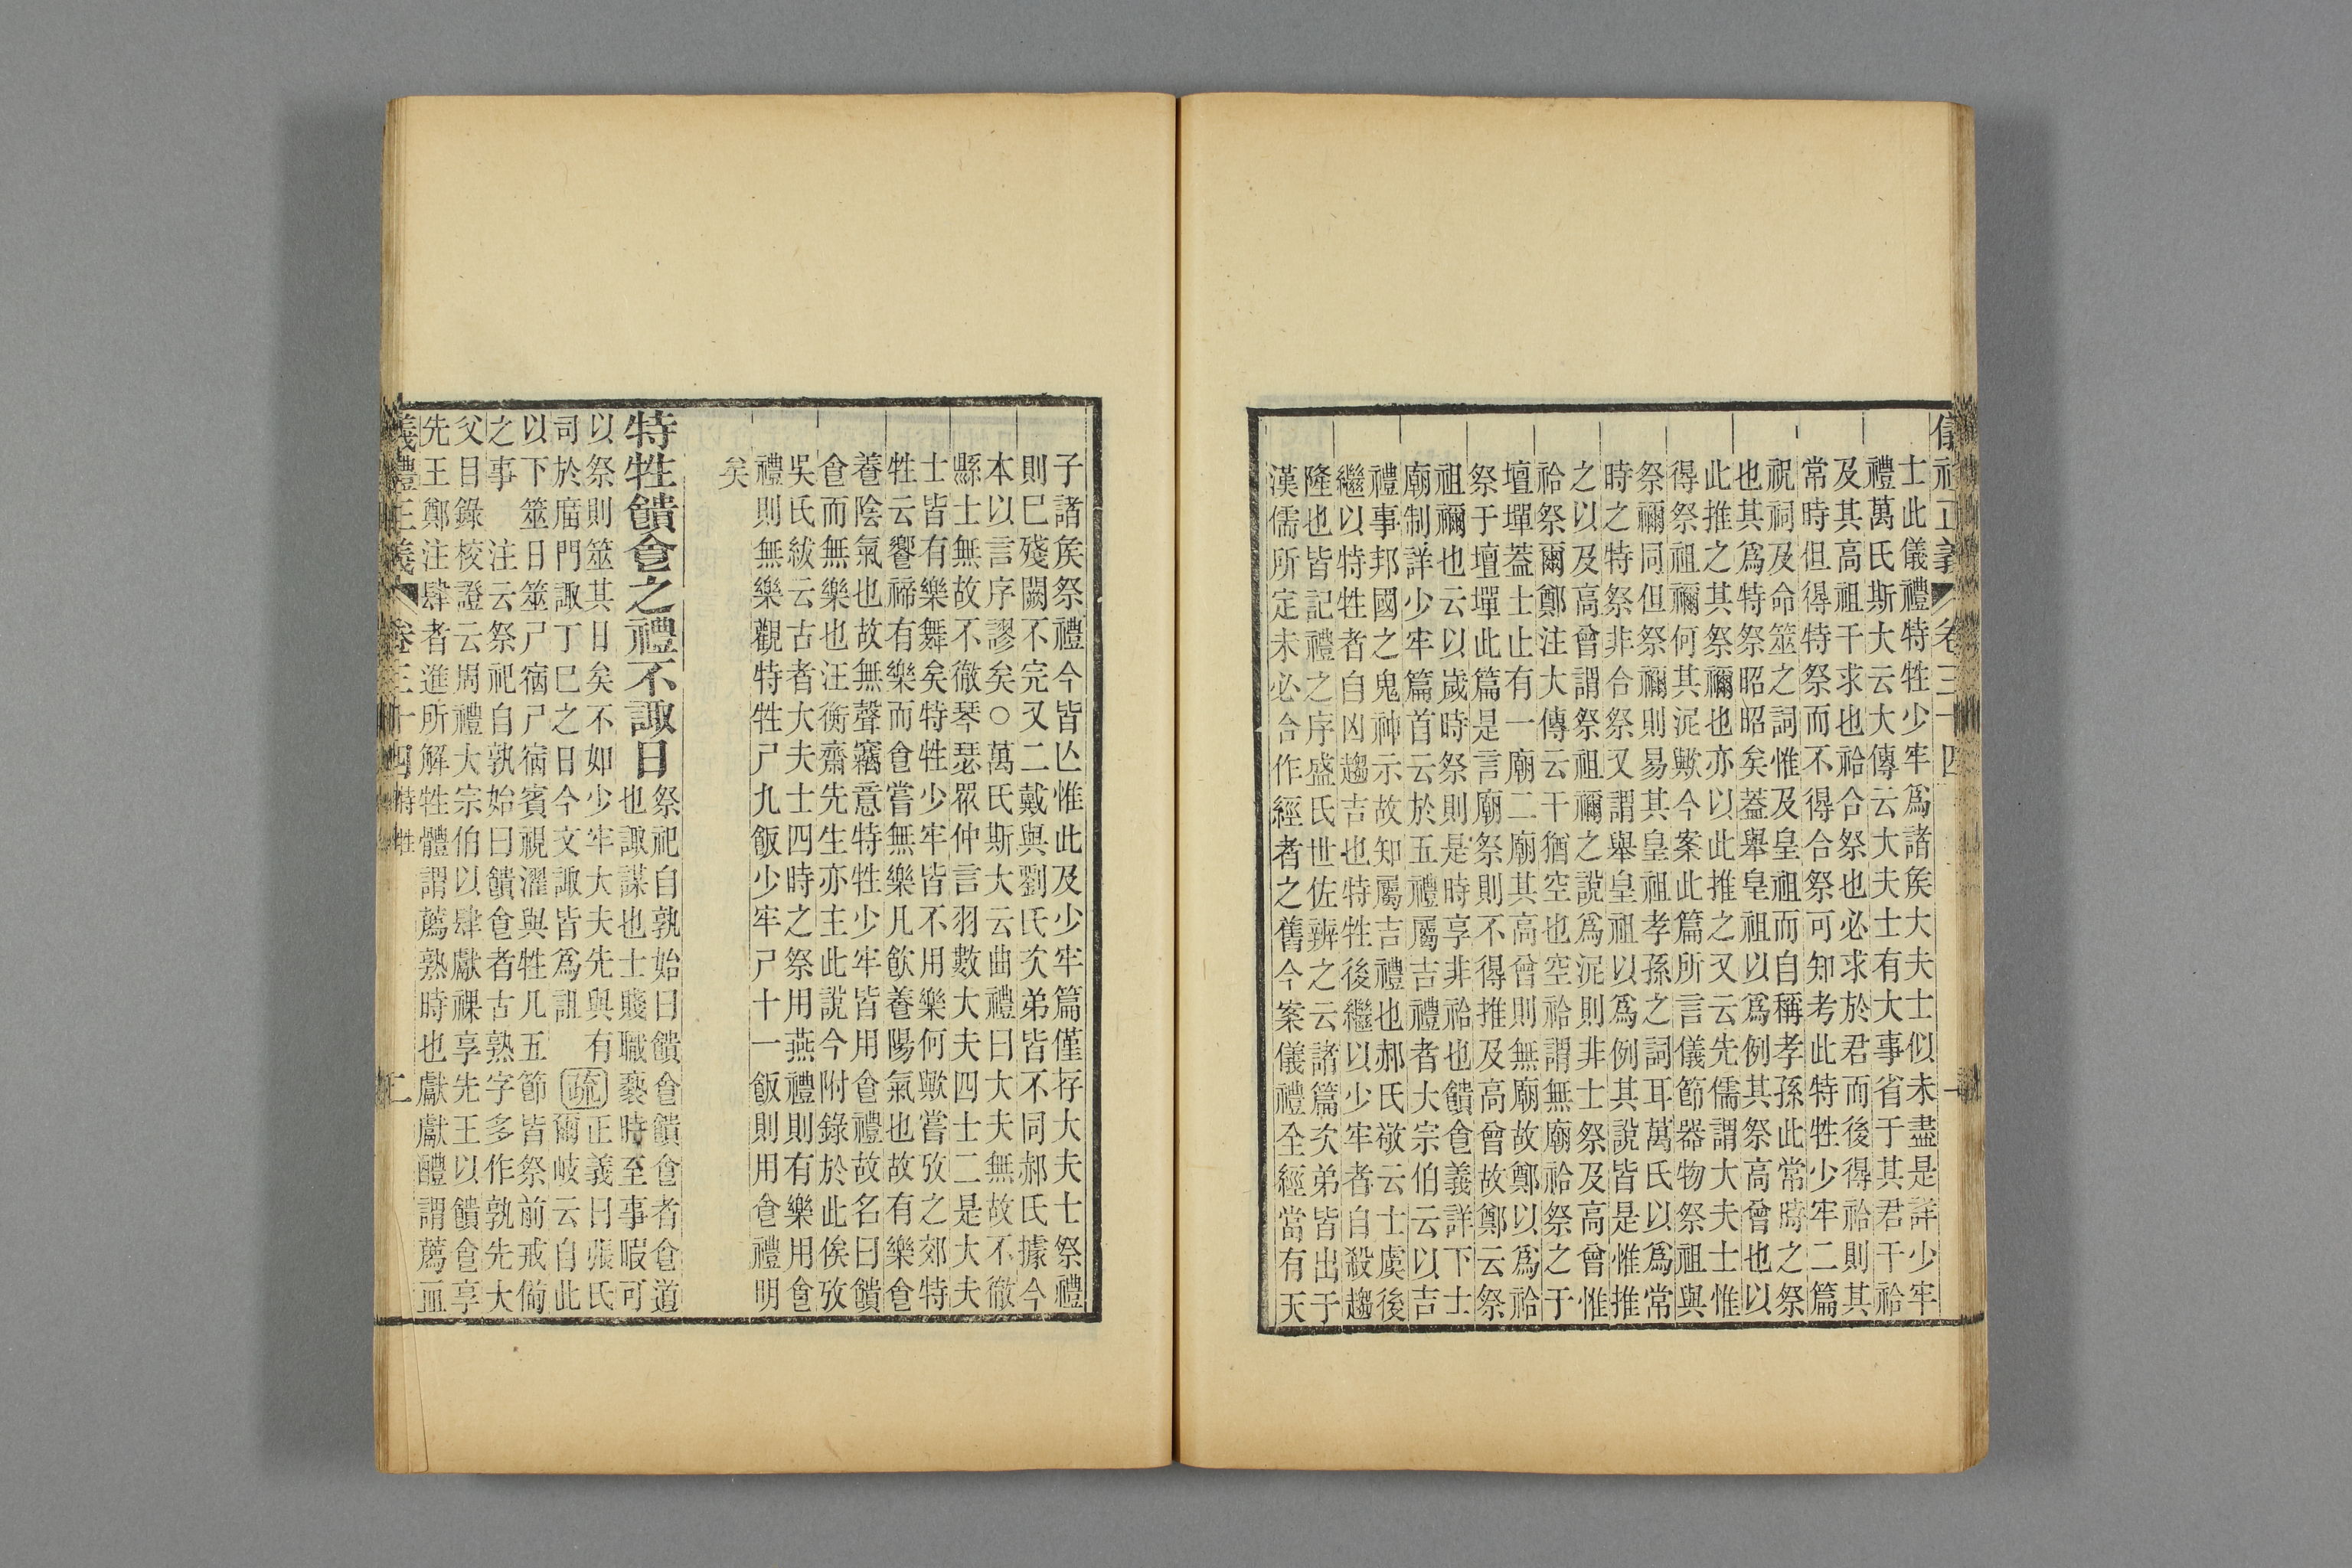 儀禮正義 卷三十四 一
士此儀禮特牲少牢爲諸矦大夫士似未盡是詳少牢
禮萬氏斯大云大傳云大夫士有大事省于其君干祫
及其高祖干求也祫合祭也必求於君而後得祫則其
常時但得特祭而不得合祭可知考此特牲少牢二篇
祝祠及命筮之詞惟及皇祖而自稱孝孫此常時之祭
也其爲特祭昭昭矣蓋舉皇祖以爲例其祭高曾也以
此推之其祭禰也亦以此推之又云先儒謂大夫士惟
得祭祖禰何其泥歟今案此篇所言儀節器物祭祖與
祭禰同但祭禰則易其皇祖孝孫之詞耳萬氏以爲常
時之特祭非合祭又謂舉皇祖以爲例其說皆是惟推
之以及高曾謂祭祖禰之說爲泥則非士祭及高曾惟
祫祭爾鄭注大傳云干猶空也空祫謂無廟祫祭之于
壇墠蓋士止有一廟二廟其高曾則無廟故鄭以爲祫
祭于壇墠此篇是言廟祭則不得推及高曾故鄭云祭
祖禰也云以歲時祭則是時享非祫也饋食義詳下士
廟制詳少牢篇首云於五禮屬吉禮者大宗伯云以吉
禮事邦國之鬼神示故知屬吉禮也郝氏敬云士虞後
繼以特牲者自凶趨吉也特牲後繼以少牢者自殺趨
隆也皆記禮之序盛氏世佐辨之云諸篇次弟皆出于
漢儒所定未必合作經者之舊今案儀禮全經當有天
子諸矦祭禮今皆亾惟此及少牢篇僅存大夫士祭禮
則巳殘闕不完又二戴與劉氏次弟皆不同郝氏據今
本以言序謬矣○萬氏斯大云曲禮曰大夫無故不徹
縣士無故不徹琴瑟眾仲言羽數大夫四士二是大夫
士皆有樂舞矣特牲少牢皆不用樂何歟嘗攷之郊特
牲云饗禘有樂而食嘗無樂凡飲養陽氣也故有樂食
養陰氣也故無聲竊意特牲少牢皆用食禮故名曰饋
食而無樂也汪衡齋先生亦主此說今附錄於此俟攷
吳氏紱云古者大夫士四時之祭用燕禮則有樂用食
禮則無樂觀特牲尸九飯少牢尸十一飯則用食禮明
矣
特牲饋食之禮不諏日
祭祀自孰始曰饋食饋食者食道
也諏謀也士賤職褻時至事暇可
以祭則筮其日矣不如少牢大夫先與有
司於庿門諏丁巳之日今文諏皆爲詛
疏
正義曰張氏
爾岐云自此
以下筮日筮尸宿尸宿賓視濯與牲凡五節皆祭前戒備
之事 注云祭祀自孰始曰饋食者古熟字多作孰先大
父目錄校證云周禮大宗伯以肆獻祼享先王以饋食享
先王鄭注肆者進所解牲體謂薦孰時也獻獻醴謂薦血
義禮正義 卷三十四 特牲 二